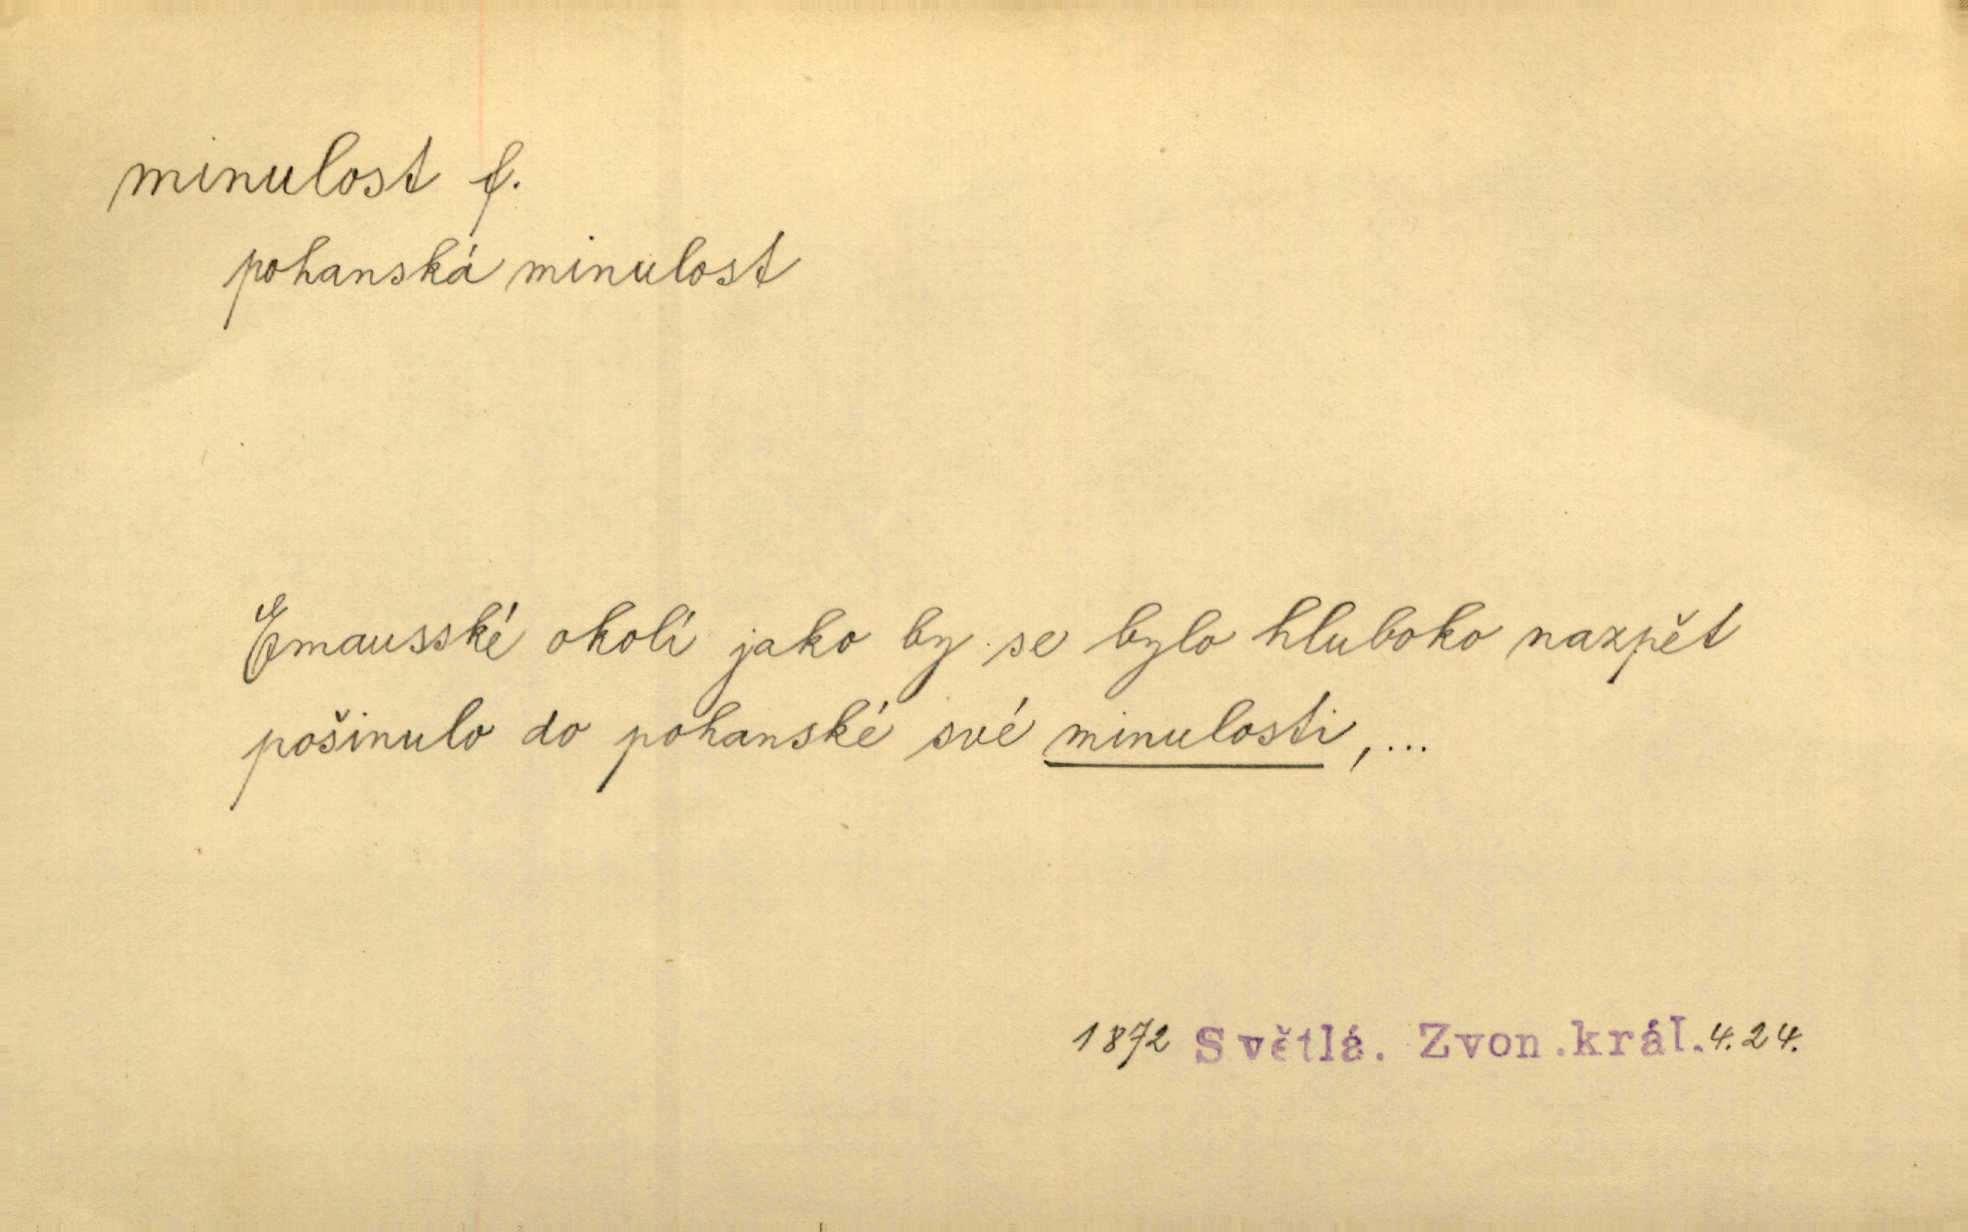 minulost f.
pohanská minulost
Emausské okolí jako by se bylo hluboko nazpět
pošinulo do pohanské své minulosti,...
1872 Světlá. Zvon.král.4.24.